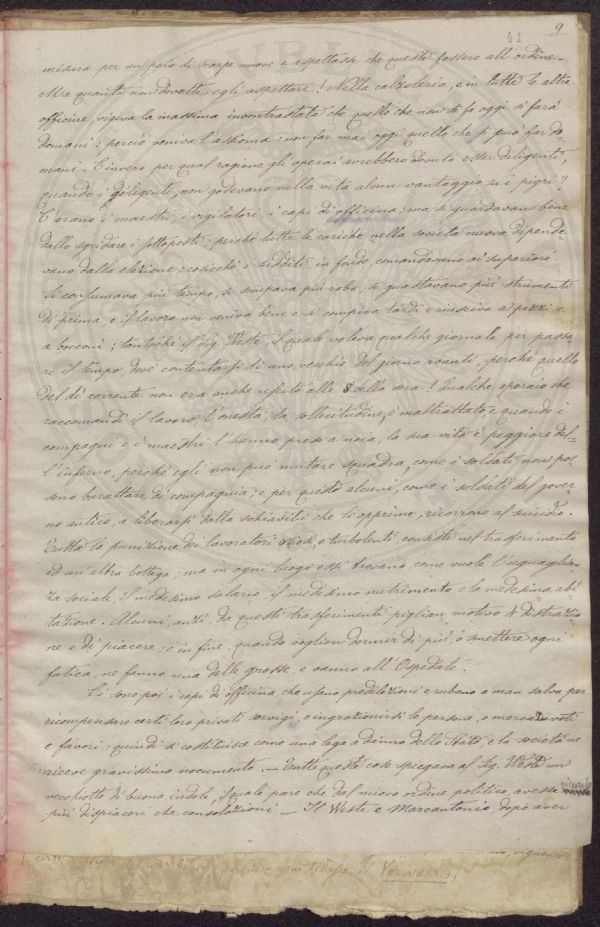 41
9
misura per un pajo di scarpe nuove e aspettasse che queste fossero all'ordine.
Ma quanto non dovette egli aspettare! Nella calzoleria, e in tutte le altre
officine, vigeva la massima incontrastata che quello che non si fa oggi si farà
domani: e perciò veniva l'assioma: non far mai oggi quello che si può far do
mani. E invero per qual ragione gli operai avrebbero dovuto esser diligenti,
quando i diligenti, non godevano nella vita alcun vantaggio su i pigri?
C'erano i maestri, i vigilatori, i capi di officina; ma si guardavan bene
dallo sgridare i sottoposti; perché tutte le cariche nella società nuova dipende-
vano dalla elezione; cosicché i sudditi in fondo comandavano ai superiori.
Si consumava più tempo, si sciupava più roba, si guastavano più strumenti
di prima, e il lavoro non veniva bene e si compiva tardi e riusciva a pezzi e
a bocconi; tantoché il Sig. Weste, il quale voleva qualche giornale per passa
re il tempo, dové contentarsi di uno vecchio del giorno avanti, perché quello
del dì corrente non era anche uscito alle 8 della sera! Qualche operaio che
raccomandi il lavoro, l'onestà, la sollecitudine, è maltrattato, e quando i
compagni e i maestri l'hanno preso a noia, la sua vita è peggiore del-
l'inferno, perché egli non può mutare squadra, come i soldati non pos
sono barattare di compagnia; e per questo alcuni, come i soldati del gover-
no antico, a liberarsi dalla schiavitù che li opprime, ricorrono al suicidio.
Tutta la punizione dei lavoratori oziosi, e turbolenti, consiste nel trasferimento
ad un'altra bottega; ma in ogni luogo essi trovano, come vuole l'uguaglian
za sociale, il medesimo salario, il medesimo nutrimento e la medesima abi
tazione. Alcuni, anzi, da questi trasferimenti piglian motivo di distrazio
ne e di piacere; e in fine, quando voglion dormir di più, o smettere ogni
fatica, ne fanno una delle grosse, e vanno all'Ospedale.
Ci sono poi i capi di officina, che usano predilezioni e rubano a man salva per
ricompensare certi loro privati servigi, o ingrazionirsi le persone, o mercar voti
e favori: quindi si costituisce come una lega a danno dello Stato, e la società ne
riceve gravissimo nocumento. — Tutte queste cose spiegava al Sig. Weste un
vecchiotto di buona indole, il quale pare che dal nuovo ordine politico, avesse
più dispiaceri che consolazioni — Il Weste e Marcantonio, dopo aver
più tempo il Vorwärts,